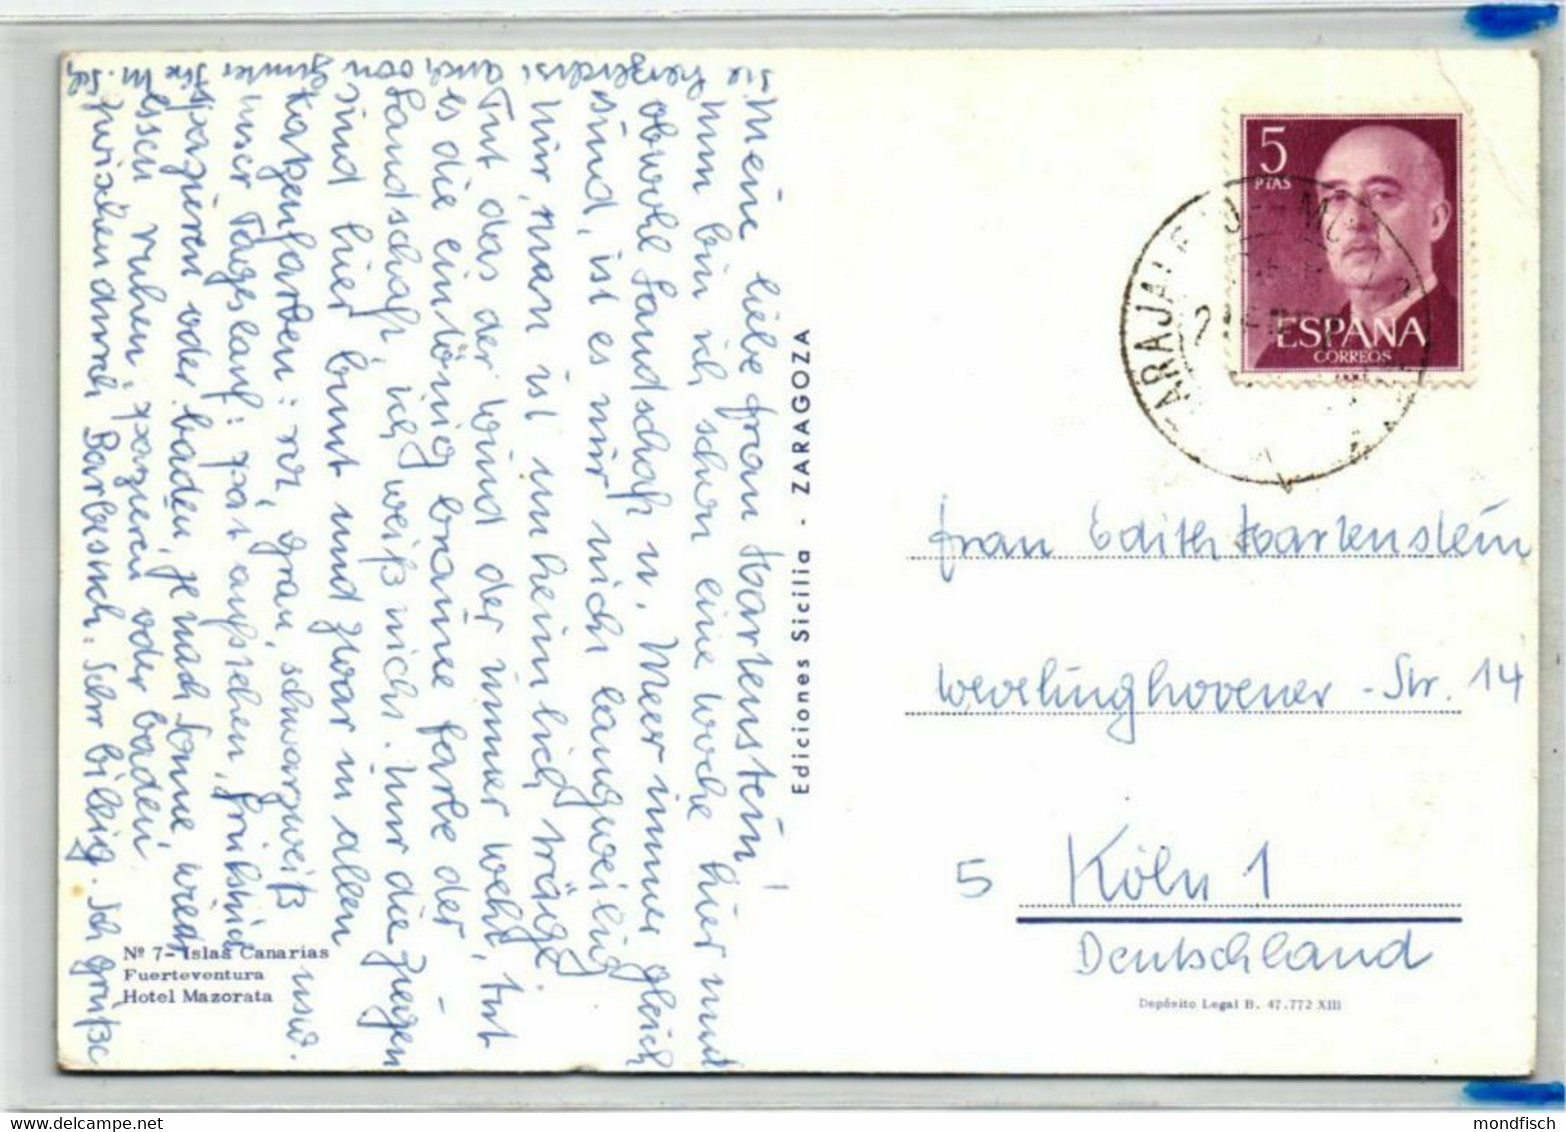 Meine liebe Frau Hartenstein!
Nun bin ich schon eine Woche hier und
obwohl Landschaft u. Meer immer gleich
sind, ist es mir nicht langweilig
Nur, man ist unheimlich träge
Tut das der Wind der immer weht, tut
es die eintönig braune Farbe der
Landschaft, ich weiß nicht. Nur die Ziegen
sind hier bunt und zwar in allen
Katzenfarben: rot, grau, schwarzweiß usw.
unser Tageslauf: spät aufstehen, Frühstück
spazieren oder baden, je nach Sonne, wieder
essen ruhen, spazieren oder baden
zwischendurch Barbesuch. Sehr billig. Ich grüße
Sie herzlichst auch von Ihre M. Sch.
Ediciones Sicilia - ZARAGOZA
Nº 7 - Islas Canarias
Fuerteventura
Hotel Mazorata
5
PTAS
ESPAÑA
CORREOS
Frau Edith Hartenstein
Wevelinghovener - Str. 14
5 Köln 1
Deutschland
Depósito Legal B. 47.772 XIII
mondfisch